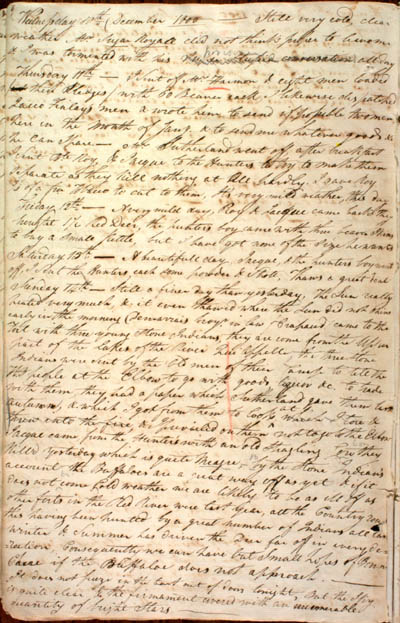 Wednesday 10th December 1800 — Still very cold, clear
weather. Mr Sugar Royale did not think proper to
& I was tormented with his conversation all day
Thursday 11th — I sent of Mr Harmon & eight men loaded
their Sledges with 60 Beaver each. I likewise dispatched
Finlays men & wrote him to send if possible two men
here in the month of Jany & to send me whatever goods
he can spare — Mr Sutherland went off after breakfast
I sent to Roy & Jacque to the Hunters to try to make them
separate as they kill nothing at All hardly. I gave Roy
to cut to them, tis very mild weather this day
Friday 12th — A very mild day, Roy & Jacque came back they
brought 1½ Red Deer, the hunters boy came with three beaver skins
to buy a small Kettle, but I have got none of the size he wants
Saturday 13th — A beautifull day, Jacque & the hunters boy went
off, I sent the Hunters each some powder & Shott. Thaws a great deal
Sunday 14th — Still a finer day than yesterday, the Sun really
heated very much & it even thawed where the Sun did not shine
early in the morning Demarrais Broy in law Crapaud came to the
Fort with three young Stone Indians, they are come from the Upper
part of the Lakes of the River Qui Appelle the three Stone
Indians were sent by the Old men of their Camp to tell the
people at the Elbow to go with goods, liquor &c. to trade
with them, they had a paper which Sutherland gave them last
autumn, & which I got from them to look at I tore &
threw into the fire, & I on them not to go to the Elbow
Jacque came from the Hunters with an Old straglin Cow they
killed yesterday which is quite Meagre — By the Stone Indians
account, the Buffaloes are a great way off as yet & if it
does not come cold weather we are likely to be as ill off as
the forts in the Red River were last year, all the Country near
this having been hunted by a great number of Indians all last
winter & Summer has driven the Deer far off in every di-
rection, Consequently we can have but Small hopes of
in case if the Buffaloe does not approach —
It does not freeze in the least out of doors tonight, but the Sky
is quite clear & the firmament covered with an innumerable
quantity of bright Stars